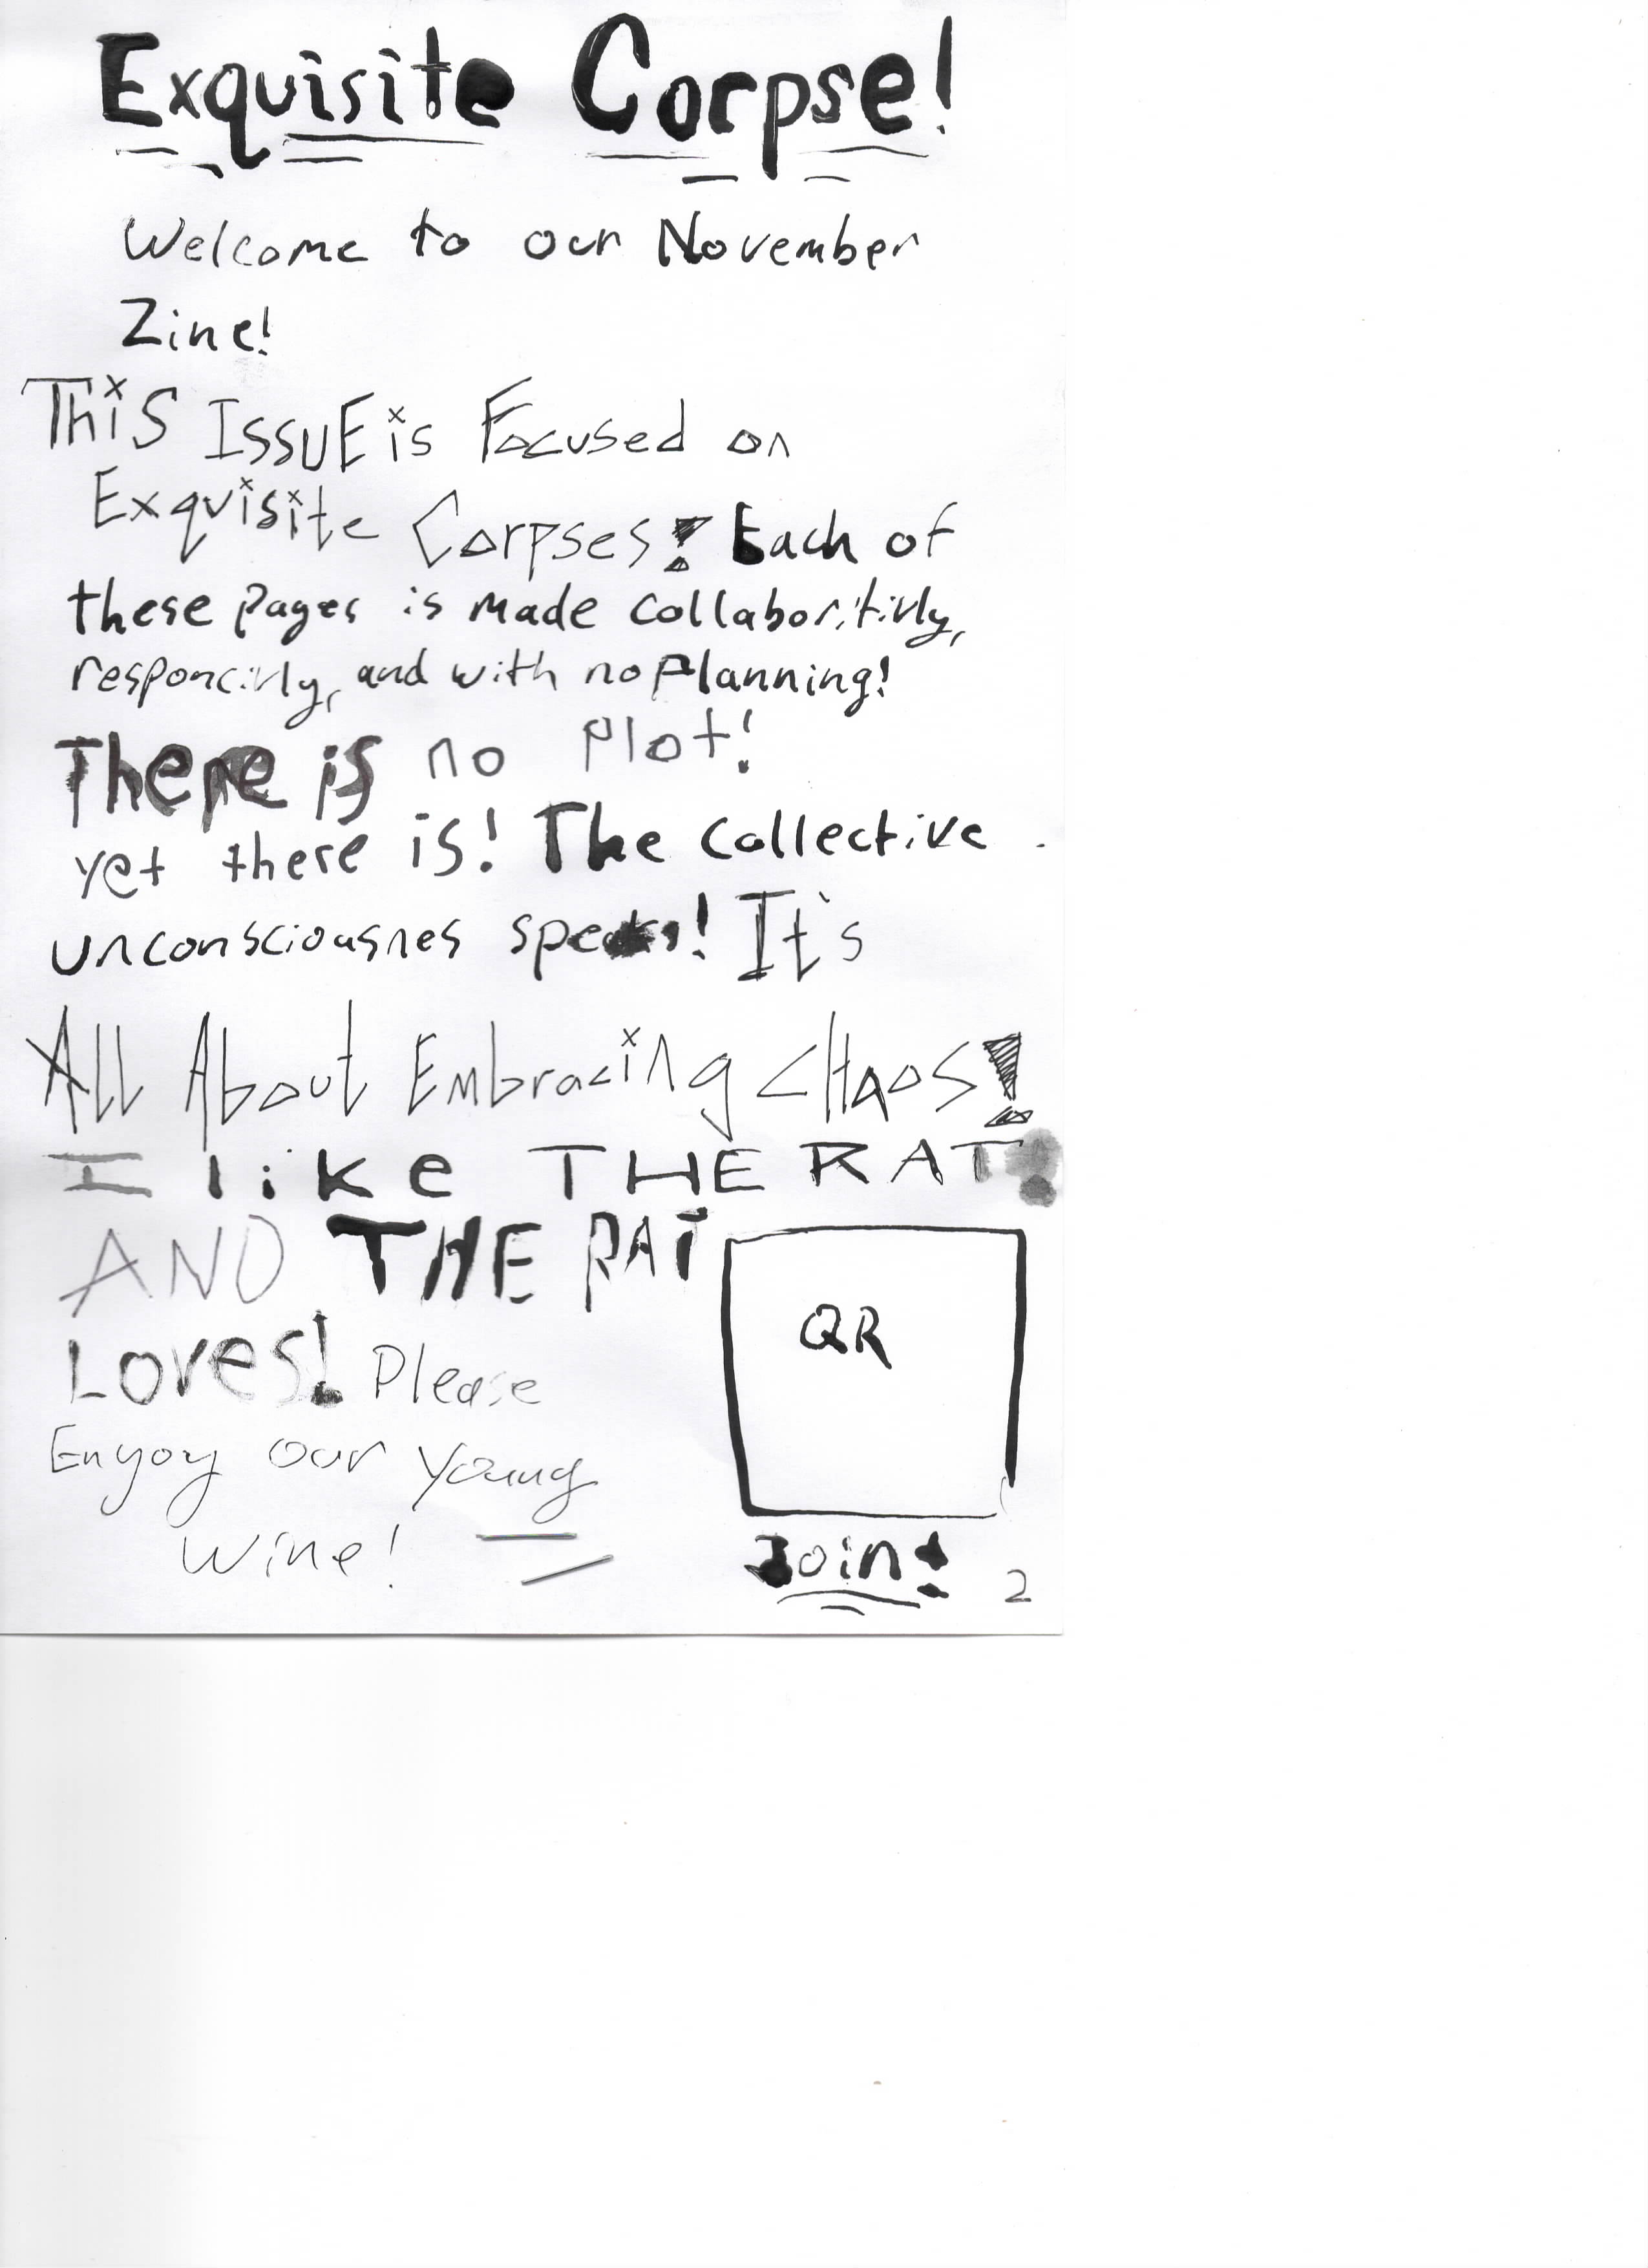 Exquisite Corpse!
Welcome to our November
Zine!
This ISSUE is Focused on
Exquisite Corpses! Each of
these pages is made collaboritivly,
responcivly, and with no Planning!
There is no Plot!
yet there is! The collective
unconsciousnes speaks! It's
All About Embracing CHaos!
I like THE RAT!
AND THE RAT
Loves! Please
Enyoy our young
wine!
QR
Join!
2